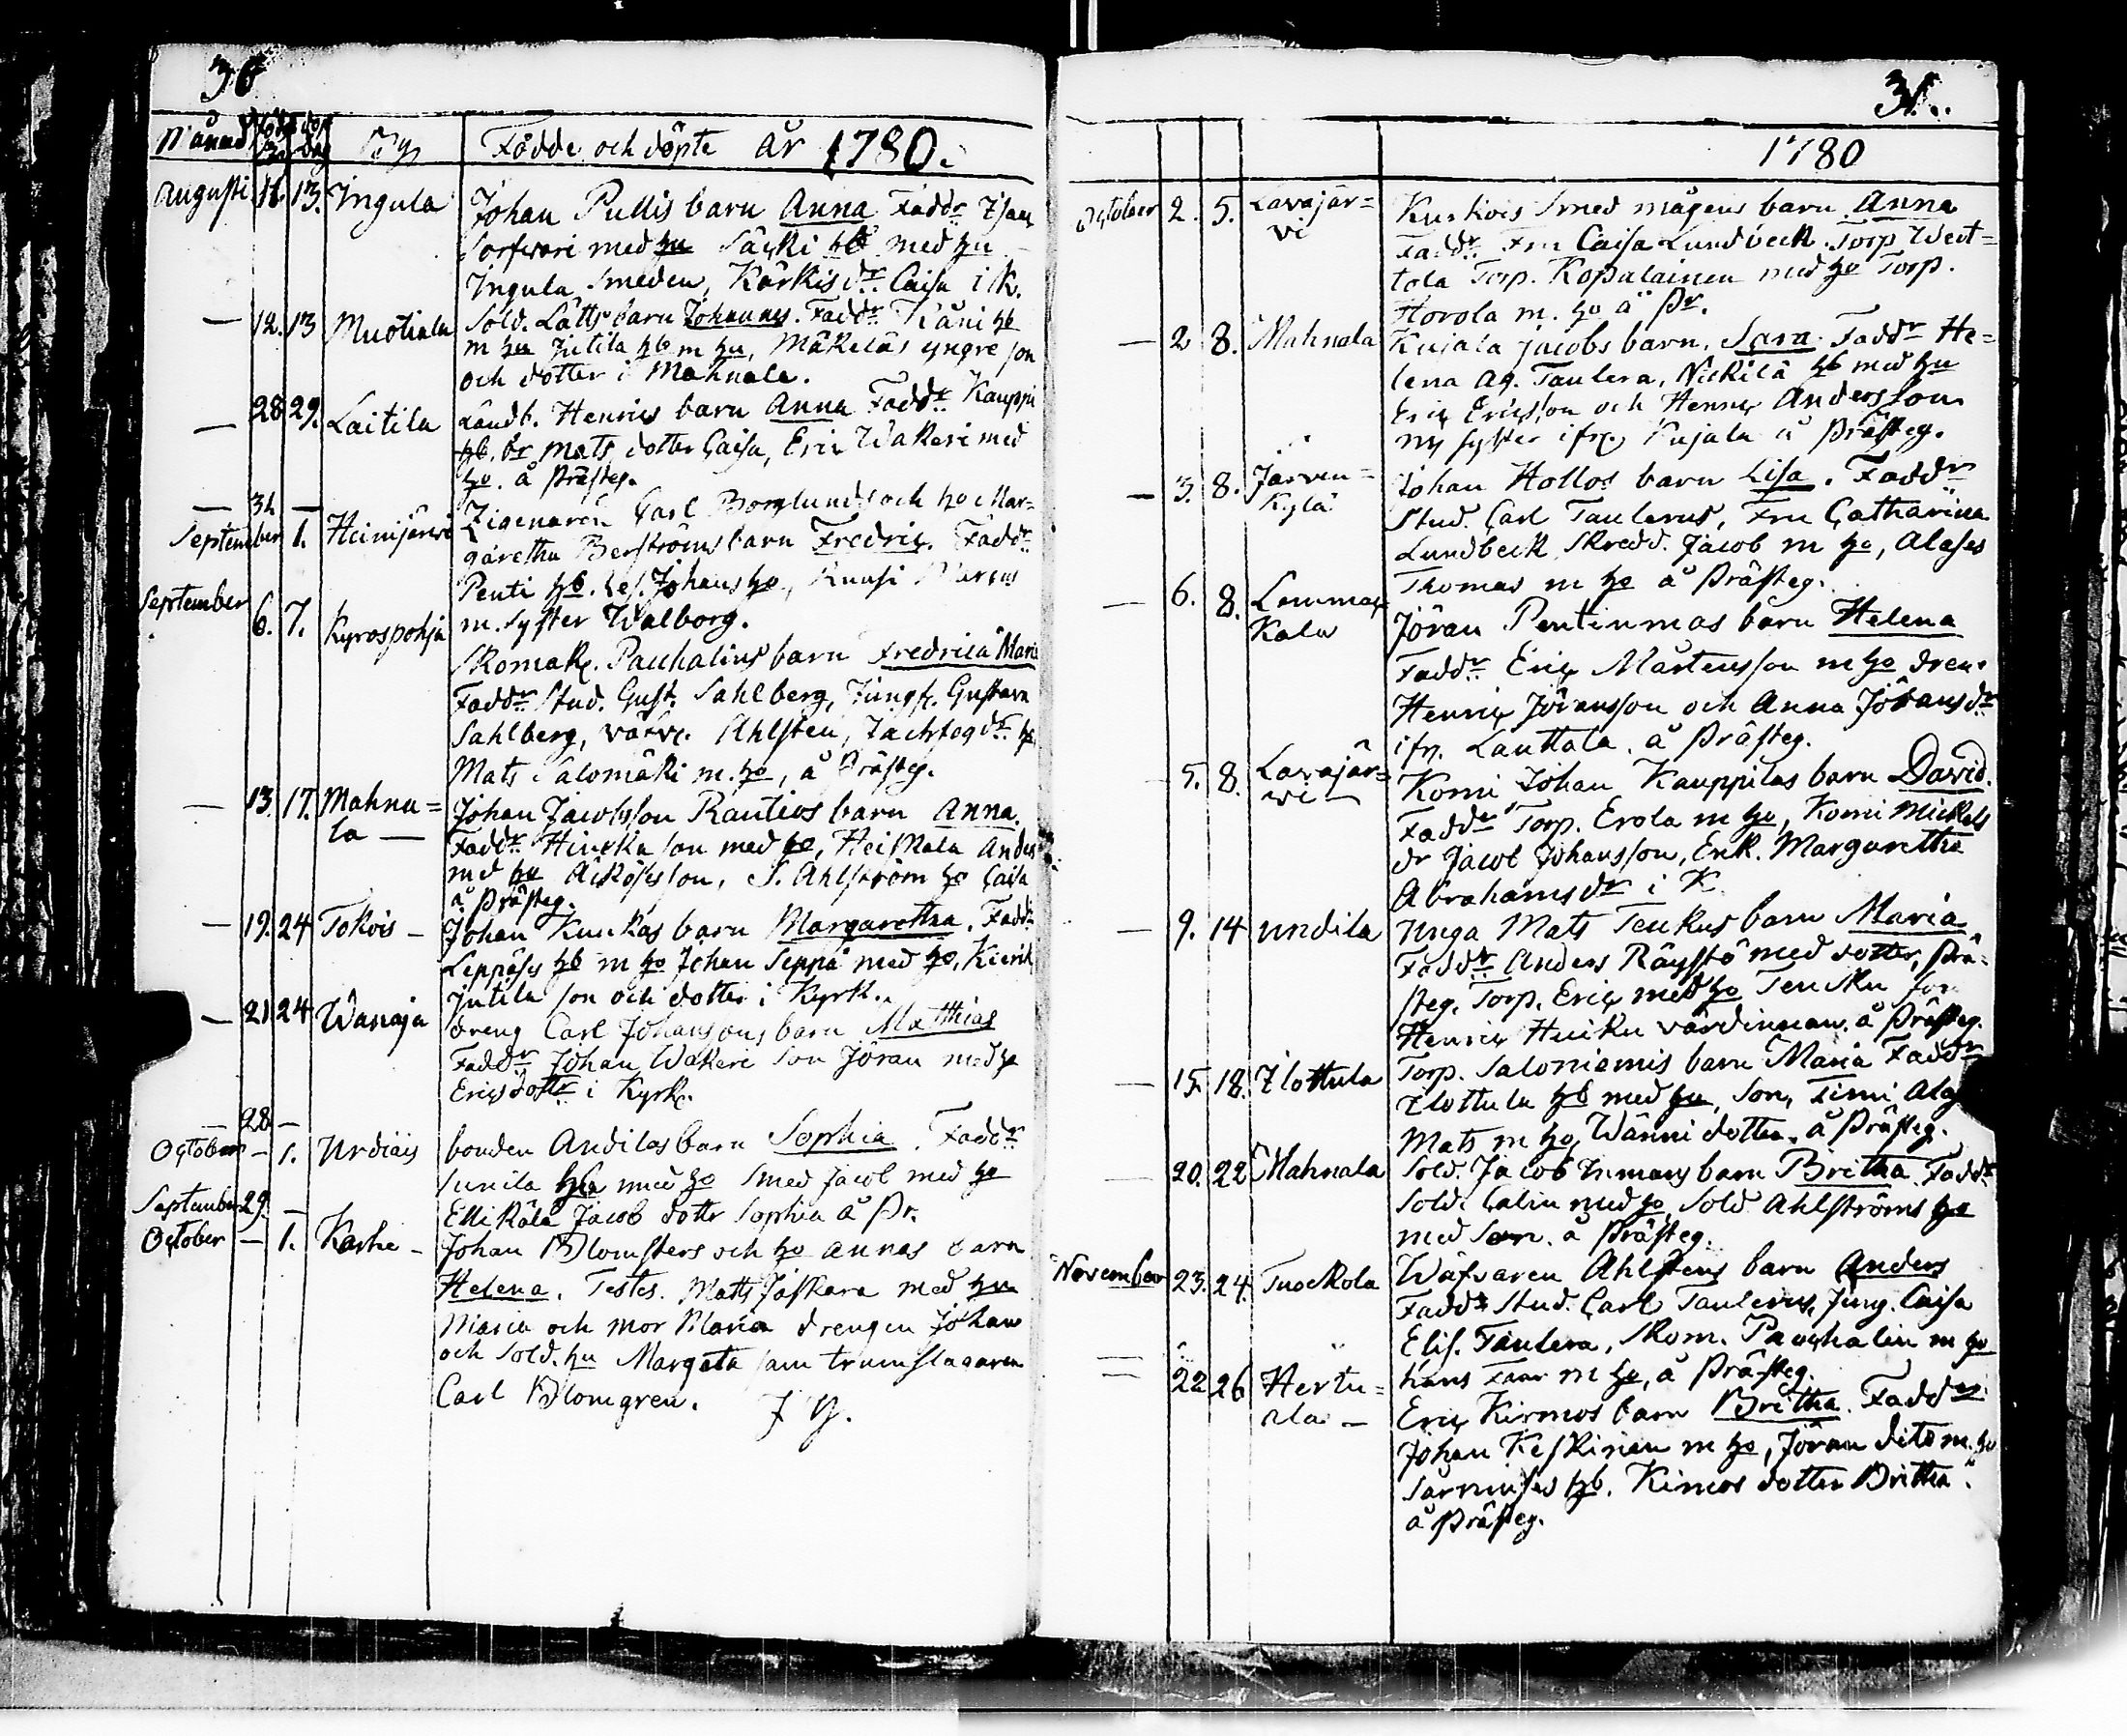 36
Månad Född dag döpt dag By Födde och döpte år 1780.
Augusti 11. 13. Ingula Johan Pullis barn Anna Faddr
Sorfvari med hu Säcki hb med hu
Ingula Smeden, Kärkis dr. Caisa i K.
— 12. 13 Muotiala Sold. Lätts barn Johannes. Faddr Räni hb
m hu Jutila hb m hu, Mäkeläs yngre son
och dotter i Mahnala.
— 28 29. Laitila Landb. Henrics barn Anna Faddr Kauppi
hb. br Mats dotter Caisa, Eric Wakeri med
ho. å Prästeg.
— 31 —
September 1. Heinijärwi Zigenaren Carl Borglunds och ho Mar-
garetha Berströms barn Fredric. Faddr
Penti hb. Johans ho, Knusi Marcus
m. Syster Walborg.
September 6. 7. Kyrospohja
Skomak. Pacchalins barn Fredrica Maria
Faddr Stud. Gust. Sahlberg, Jungf. Gustava
Sahlberg, väfv. Ahlsten,
Mats Salomäki m. ho, å Prästeg.
— 13. 17. Mahna=
la — Johan Jacobsson Rautios barn Anna.
Faddr Hincka son med ho, Heiskala Anders
med hu Äiköses son, S. Ahlström ho Caisa
å Prästeg.
— 19. 24 Tokois — Johan Kuckas barn Margaretha. Faddr
Leppäses hb m ho Johan Seppä med ho,
Jutila son och dotter i Kyrk.
— 21 24 Wanaja dreng Carl Johanssons barn Matthias
Faddr Johan Wakeri Son Jöran med ho
Ericsdottr i Kyrk.
28 —
October — 1. Urdiais bonden Andilas barn Sophia. Faddr
Sunila hb med ho Smed Jacob med ho
Ellikälä Jacob dottr Sophia å Pr.
September 29. —
October — 1. Karhe — Johan Blomsters och ho Annas barn
Helena. Testes. Matts Jäskara med hu
Maria och mor Maria drengen Johan
och Sold. hu Margeta sam trumslagaren
Carl Blomgren.
31.
1780
October 2. 5. Lavajär=
vi Kuskois Smed mågens barn Anna
Faddr Fru Caisa Lundbeck. Torp Weit=
tola Torp. Kopalainen med ho Torp.
Horola m. ho å Pr.
— 2 8. Mahnala Kujala Jacobs barn, Sara. Faddr He=
lena Ag. Taulera, Nickilä hb med hu
Eric Ericsson och Henric Andersson
ny syster ifr. Kujala å Prästeg.
— 3. 8. Järven=
kylä Johan Hollos barn Lisa. Faddr
Stud. Carl Taulerus, Fru Catharina
Lundbeck Skredd. Jacob m ho, Alases
Thomas m ho å Prästeg.
— 6. 8. Lemmac
kala Jöran Pentinmas barn Helena
Faddr Eric Mårtensson m ho dren.
Henric Jöransson och Anna Jöransdr
ifr. Lauttala. å Prästeg.
5. 8. Lavajär=
vi — Komi Johan Kauppilas barn David.
Faddr Torp. Erola m ho, Komi Mickels
dr Jacob Johansson, Enk. Margaretha
Abrahamsdr i K
— 9. 14 undila Unga Mats Teukus barn Maria
Faddr Anders Räystö med dotter, Prä-
steg. Torp. Eric med ho Teucku son
Henric Huiku värdinnan. å Prästeg.
— 15. 18. Ilottula Torp. Saloniemis barn Maria Faddr
Ilottula hb med hu, Son, Timi Alg
Mats m ho, Wänni dotter. å Prästeg.
20. 22 Mahnala Sold. Jacob Inmans barn Britha Faddr
Sold. Calin med ho, Sold Ahlströms ho
med Son. å Prästeg.
November 23. 24. Tuockola Wäfvaren Ahlstens barn Anders
Faddr Stud. Carl Taulerus, Jung. Caisa
Elis. Taulera, Skom. Pacchalin m ho
hans Faar m ho, å Prästeg.
22 26 Hertu=
ala — Eric Kirmos barn Britha. Faddr
Johan Keskinen m ho, Jöran dito m. ho
Särmises hb. Kimos dotter Britha.
å Prästeg.